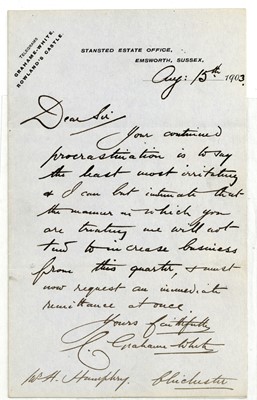 TELEGRAMS
GRAHAME-WHITE,
ROWLAND'S CASTLE.
STANSTED ESTATE OFFICE,
EMSWORTH, SUSSEX,
Aug: 15th 1903.
Dear Sir
Your continued
procrastination is to say
the least most irritating
& I can but intimate that
the manner in which you
are treating me will not
tend to increase business
from this quarter, & must
now request an immediate
remittance at once.
Yours faithfully
C. Grahame-White
Mr. H. Humphry. Chichester